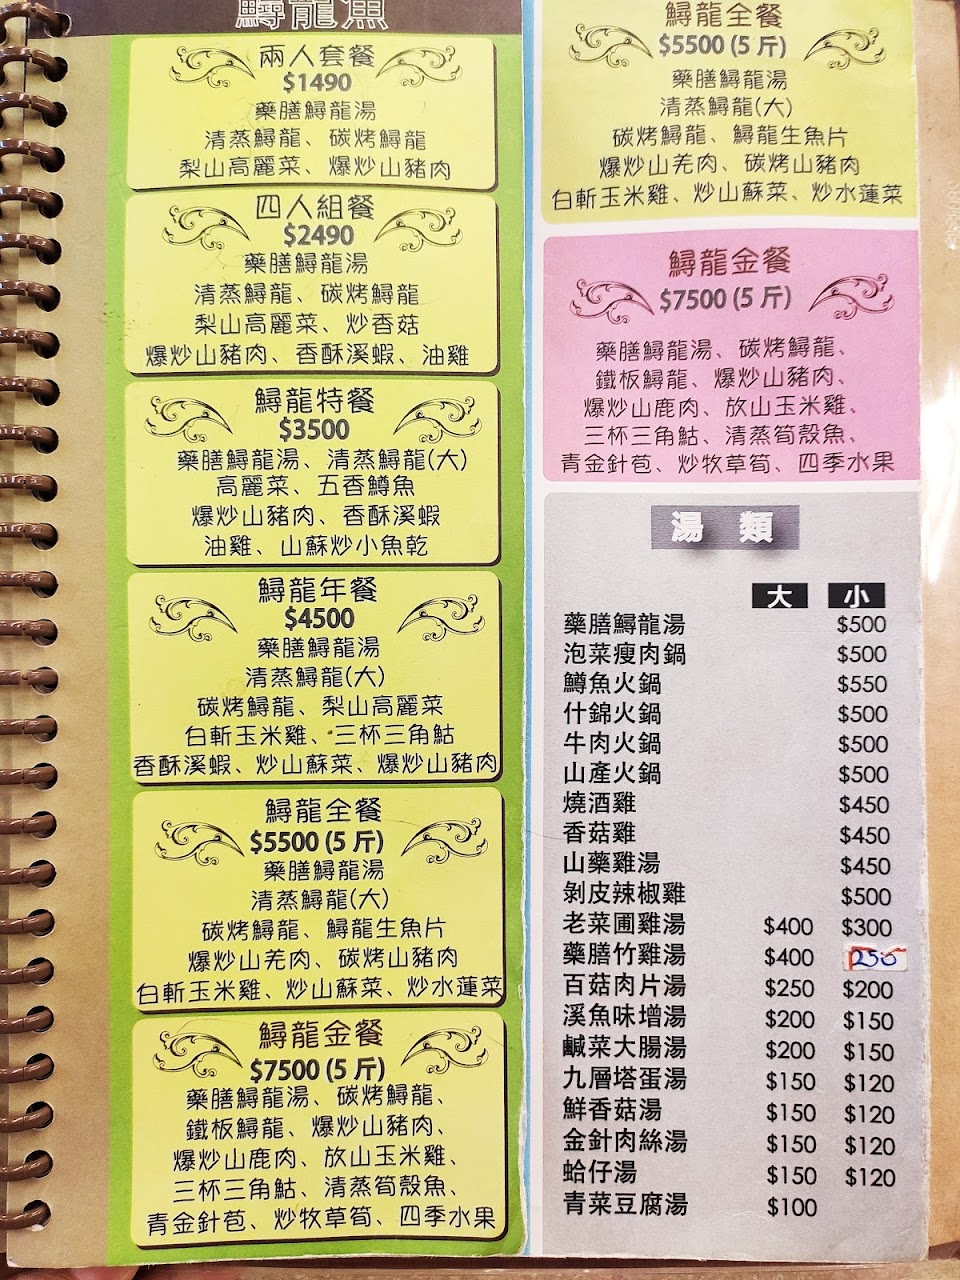 鱘龍魚
兩人套餐
$1490
藥膳鱘龍湯
清蒸鱘龍、碳烤鱘龍
梨山高麗菜、爆炒山豬肉
四人組餐
$2490
藥膳鱘龍湯
清蒸鱘龍、碳烤鱘龍
梨山高麗菜、炒香菇
爆炒山豬肉、香酥溪蝦、油雞
鱘龍特餐
$3500
藥膳鱘龍湯、清蒸鱘龍(大)
高麗菜、五香鱒魚
爆炒山豬肉、香酥溪蝦
油雞、山蘇炒小魚乾
鱘龍年餐
$4500
藥膳鱘龍湯
清蒸鱘龍(大)
碳烤鱘龍、梨山高麗菜
白斬玉米雞、三杯三角鮕
香酥溪蝦、炒山蘇菜、爆炒山豬肉
鱘龍全餐
$5500 (5 斤)
藥膳鱘龍湯
清蒸鱘龍(大)
碳烤鱘龍、鱘龍生魚片
爆炒山羌肉、碳烤山豬肉
白斬玉米雞、炒山蘇菜、炒水蓮菜
鱘龍金餐
$7500 (5 斤)
藥膳鱘龍湯、碳烤鱘龍、
鐵板鱘龍、爆炒山豬肉、
爆炒山鹿肉、放山玉米雞、
三杯三角鮕、清蒸筍殼魚、
青金針苞、炒牧草筍、四季水果
鱘龍全餐
$5500 (5 斤)
藥膳鱘龍湯
清蒸鱘龍(大)
碳烤鱘龍、鱘龍生魚片
爆炒山羌肉、碳烤山豬肉
白斬玉米雞、炒山蘇菜、炒水蓮菜
鱘龍金餐
$7500 (5 斤)
藥膳鱘龍湯、碳烤鱘龍、
鐵板鱘龍、爆炒山豬肉、
爆炒山鹿肉、放山玉米雞、
三杯三角鮕、清蒸筍殼魚、
青金針苞、炒牧草筍、四季水果
湯 類
大 小
藥膳鱘龍湯 $500
泡菜瘦肉鍋 $500
鱒魚火鍋 $550
什錦火鍋 $500
牛肉火鍋 $500
山產火鍋 $500
燒酒雞 $450
香菇雞 $450
山藥雞湯 $450
剝皮辣椒雞 $500
老菜圃雞湯 $400 $300
藥膳竹雞湯 $400 250
百菇肉片湯 $250 $200
溪魚味增湯 $200 $150
鹹菜大腸湯 $200 $150
九層塔蛋湯 $150 $120
鮮香菇湯 $150 $120
金針肉絲湯 $150 $120
蛤仔湯 $150 $120
青菜豆腐湯 $100